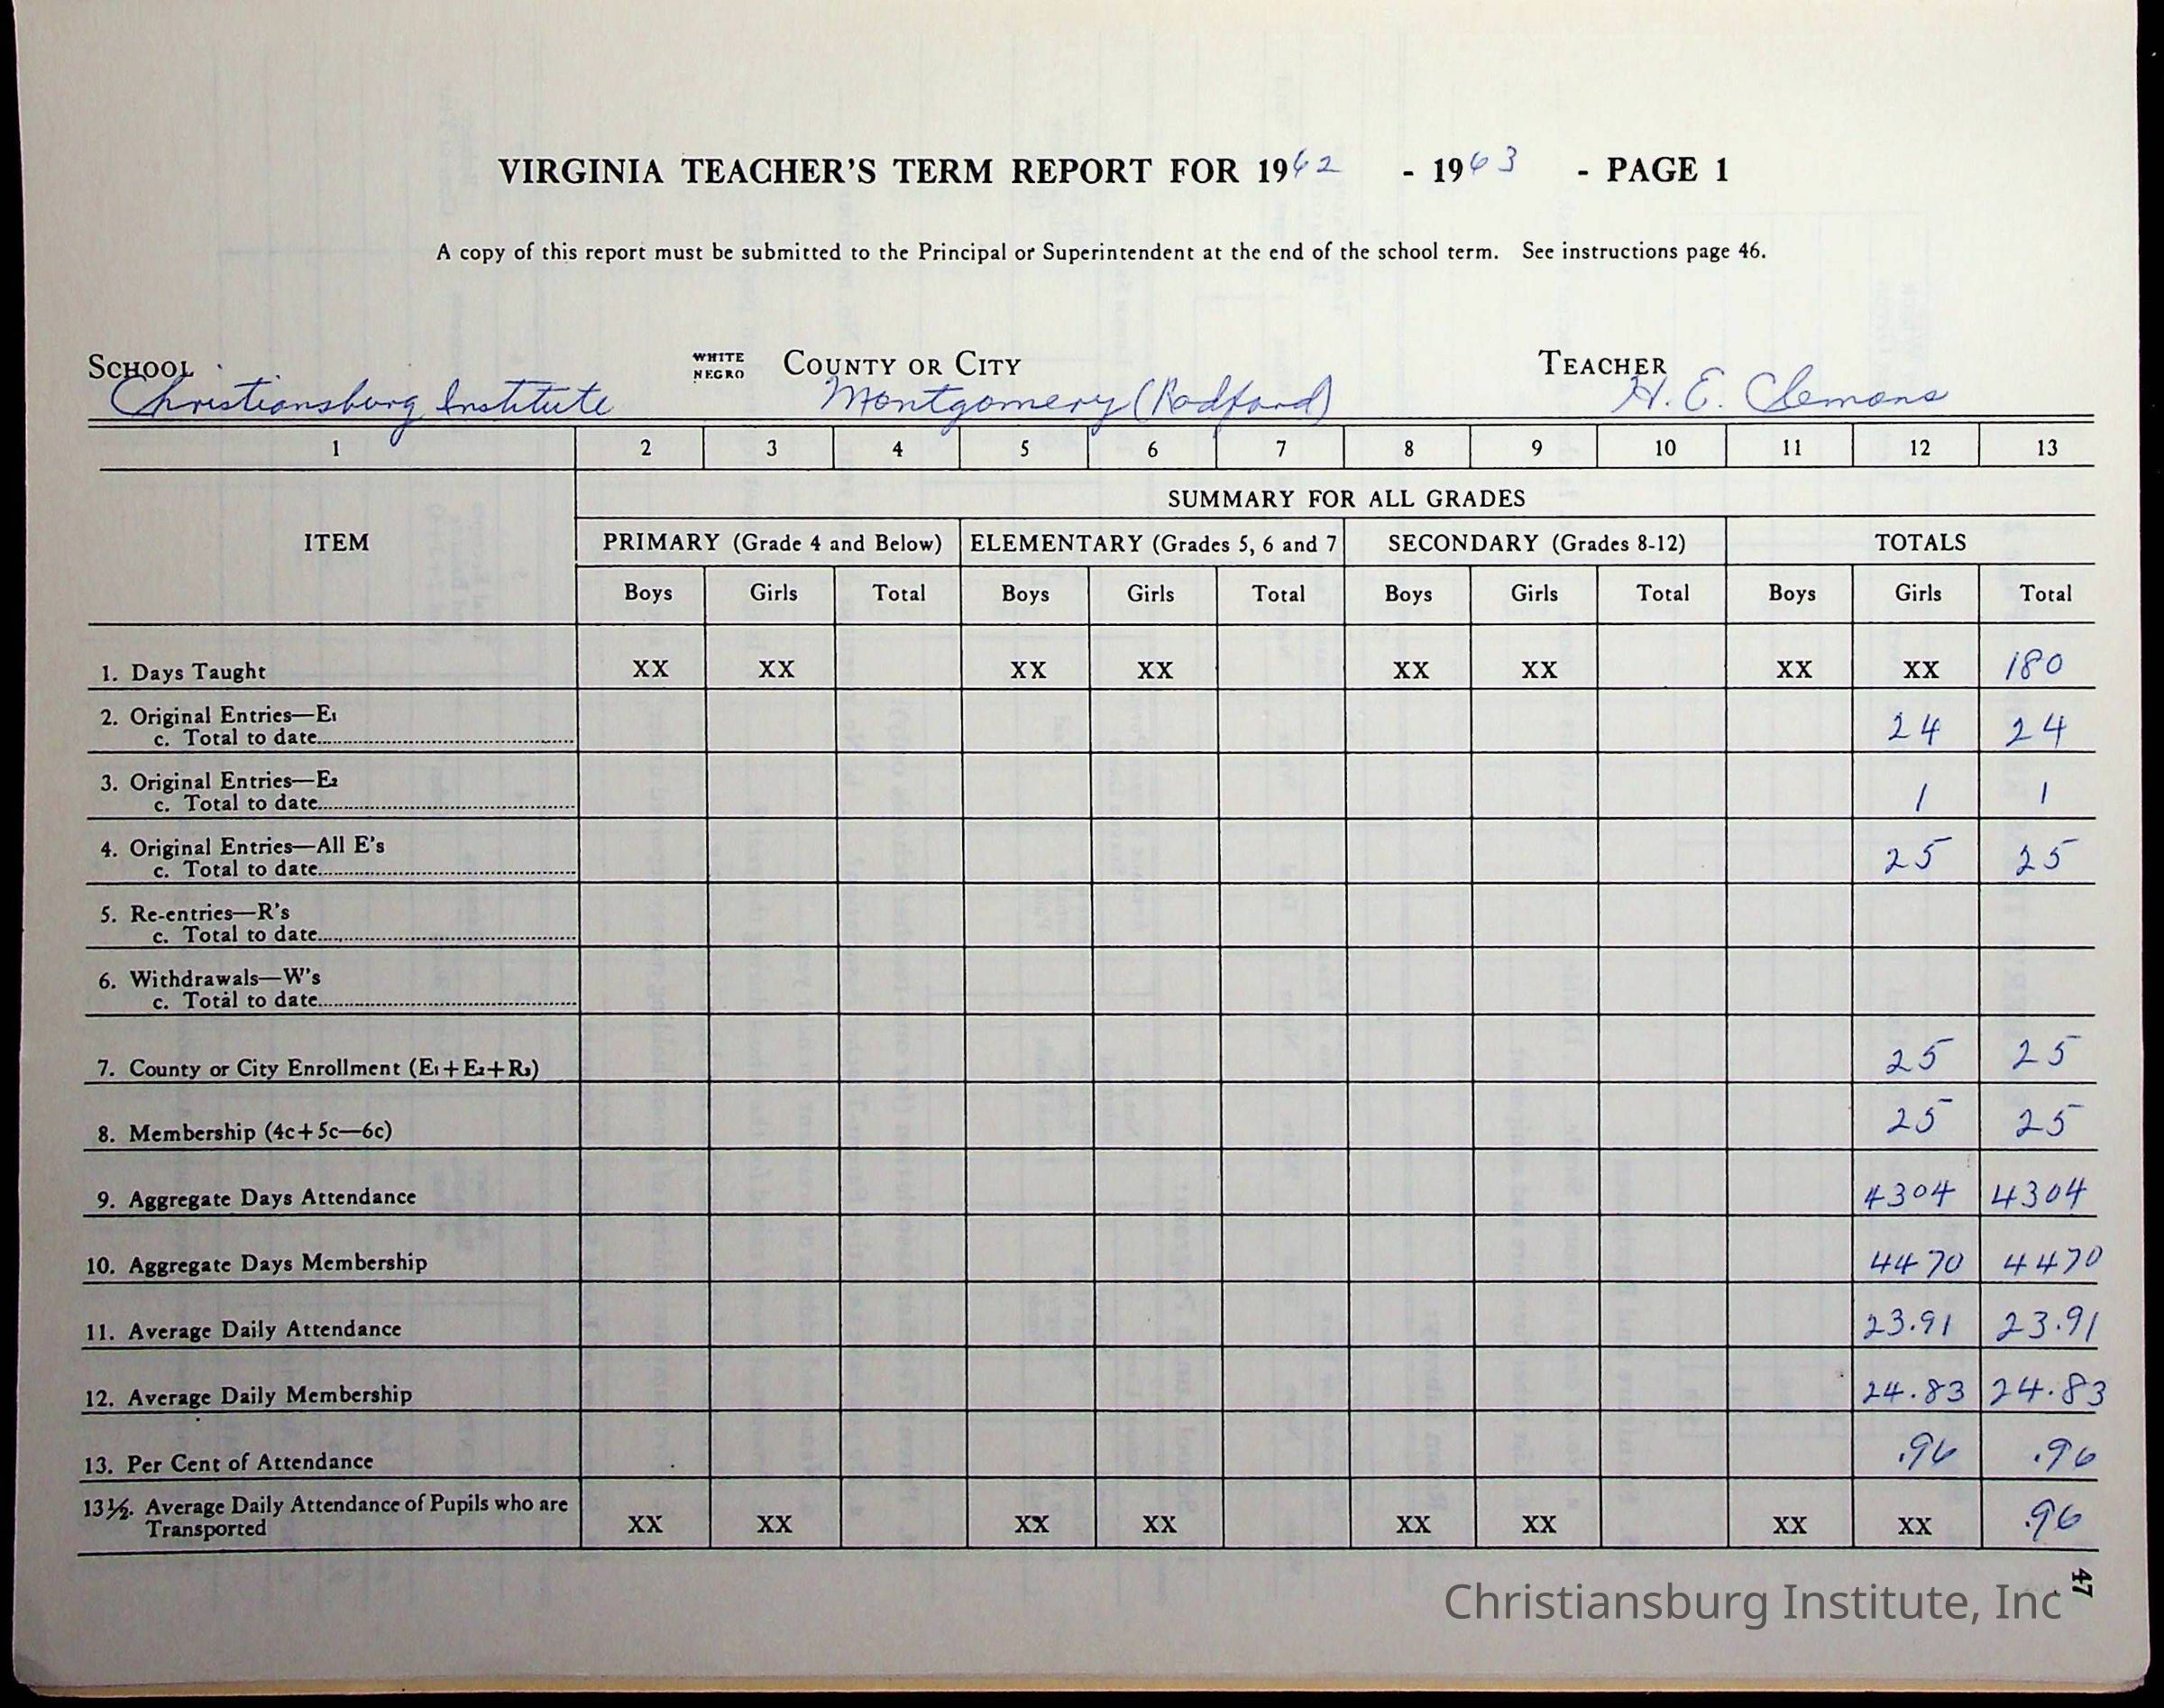 VIRGINIA TEACHER'S TERM REPORT FOR 1962 - 1963 - PAGE 1
A copy of this report must be submitted to the Principal or Superintendent at the end of the school term. See instructions page 46.
SCHOOL WHITE NEGRO COUNTY OR CITY TEACHER
Christiansburg Institute Montgomery (Radford) H. E. Clemons
1 2 3 4 5 6 7 8 9 10 11 12 13
SUMMARY FOR ALL GRADES
ITEM PRIMARY (Grade 4 and Below) ELEMENTARY (Grades 5, 6 and 7 SECONDARY (Grades 8-12) TOTALS
Boys Girls Total Boys Girls Total Boys Girls Total Boys Girls Total
1. Days Taught XX XX XX XX XX XX XX XX 180
2. Original Entries—E1
c. Total to date 24 24
3. Original Entries—E2
c. Total to date 1 1
4. Original Entries—All E's
c. Total to date 25 25
5. Re-entries—R's
c. Total to date
6. Withdrawals—W's
c. Total to date
7. County or City Enrollment (E1+E2+R3) 25 25
8. Membership (4c+5c—6c) 25 25
9. Aggregate Days Attendance 4304 4304
10. Aggregate Days Membership 4470 4470
11. Average Daily Attendance 23.91 23.91
12. Average Daily Membership 24.83 24.83
13. Per Cent of Attendance .96 .96
13½. Average Daily Attendance of Pupils who are
Transported XX XX XX XX XX XX XX XX .96
47
Christiansburg Institute, Inc